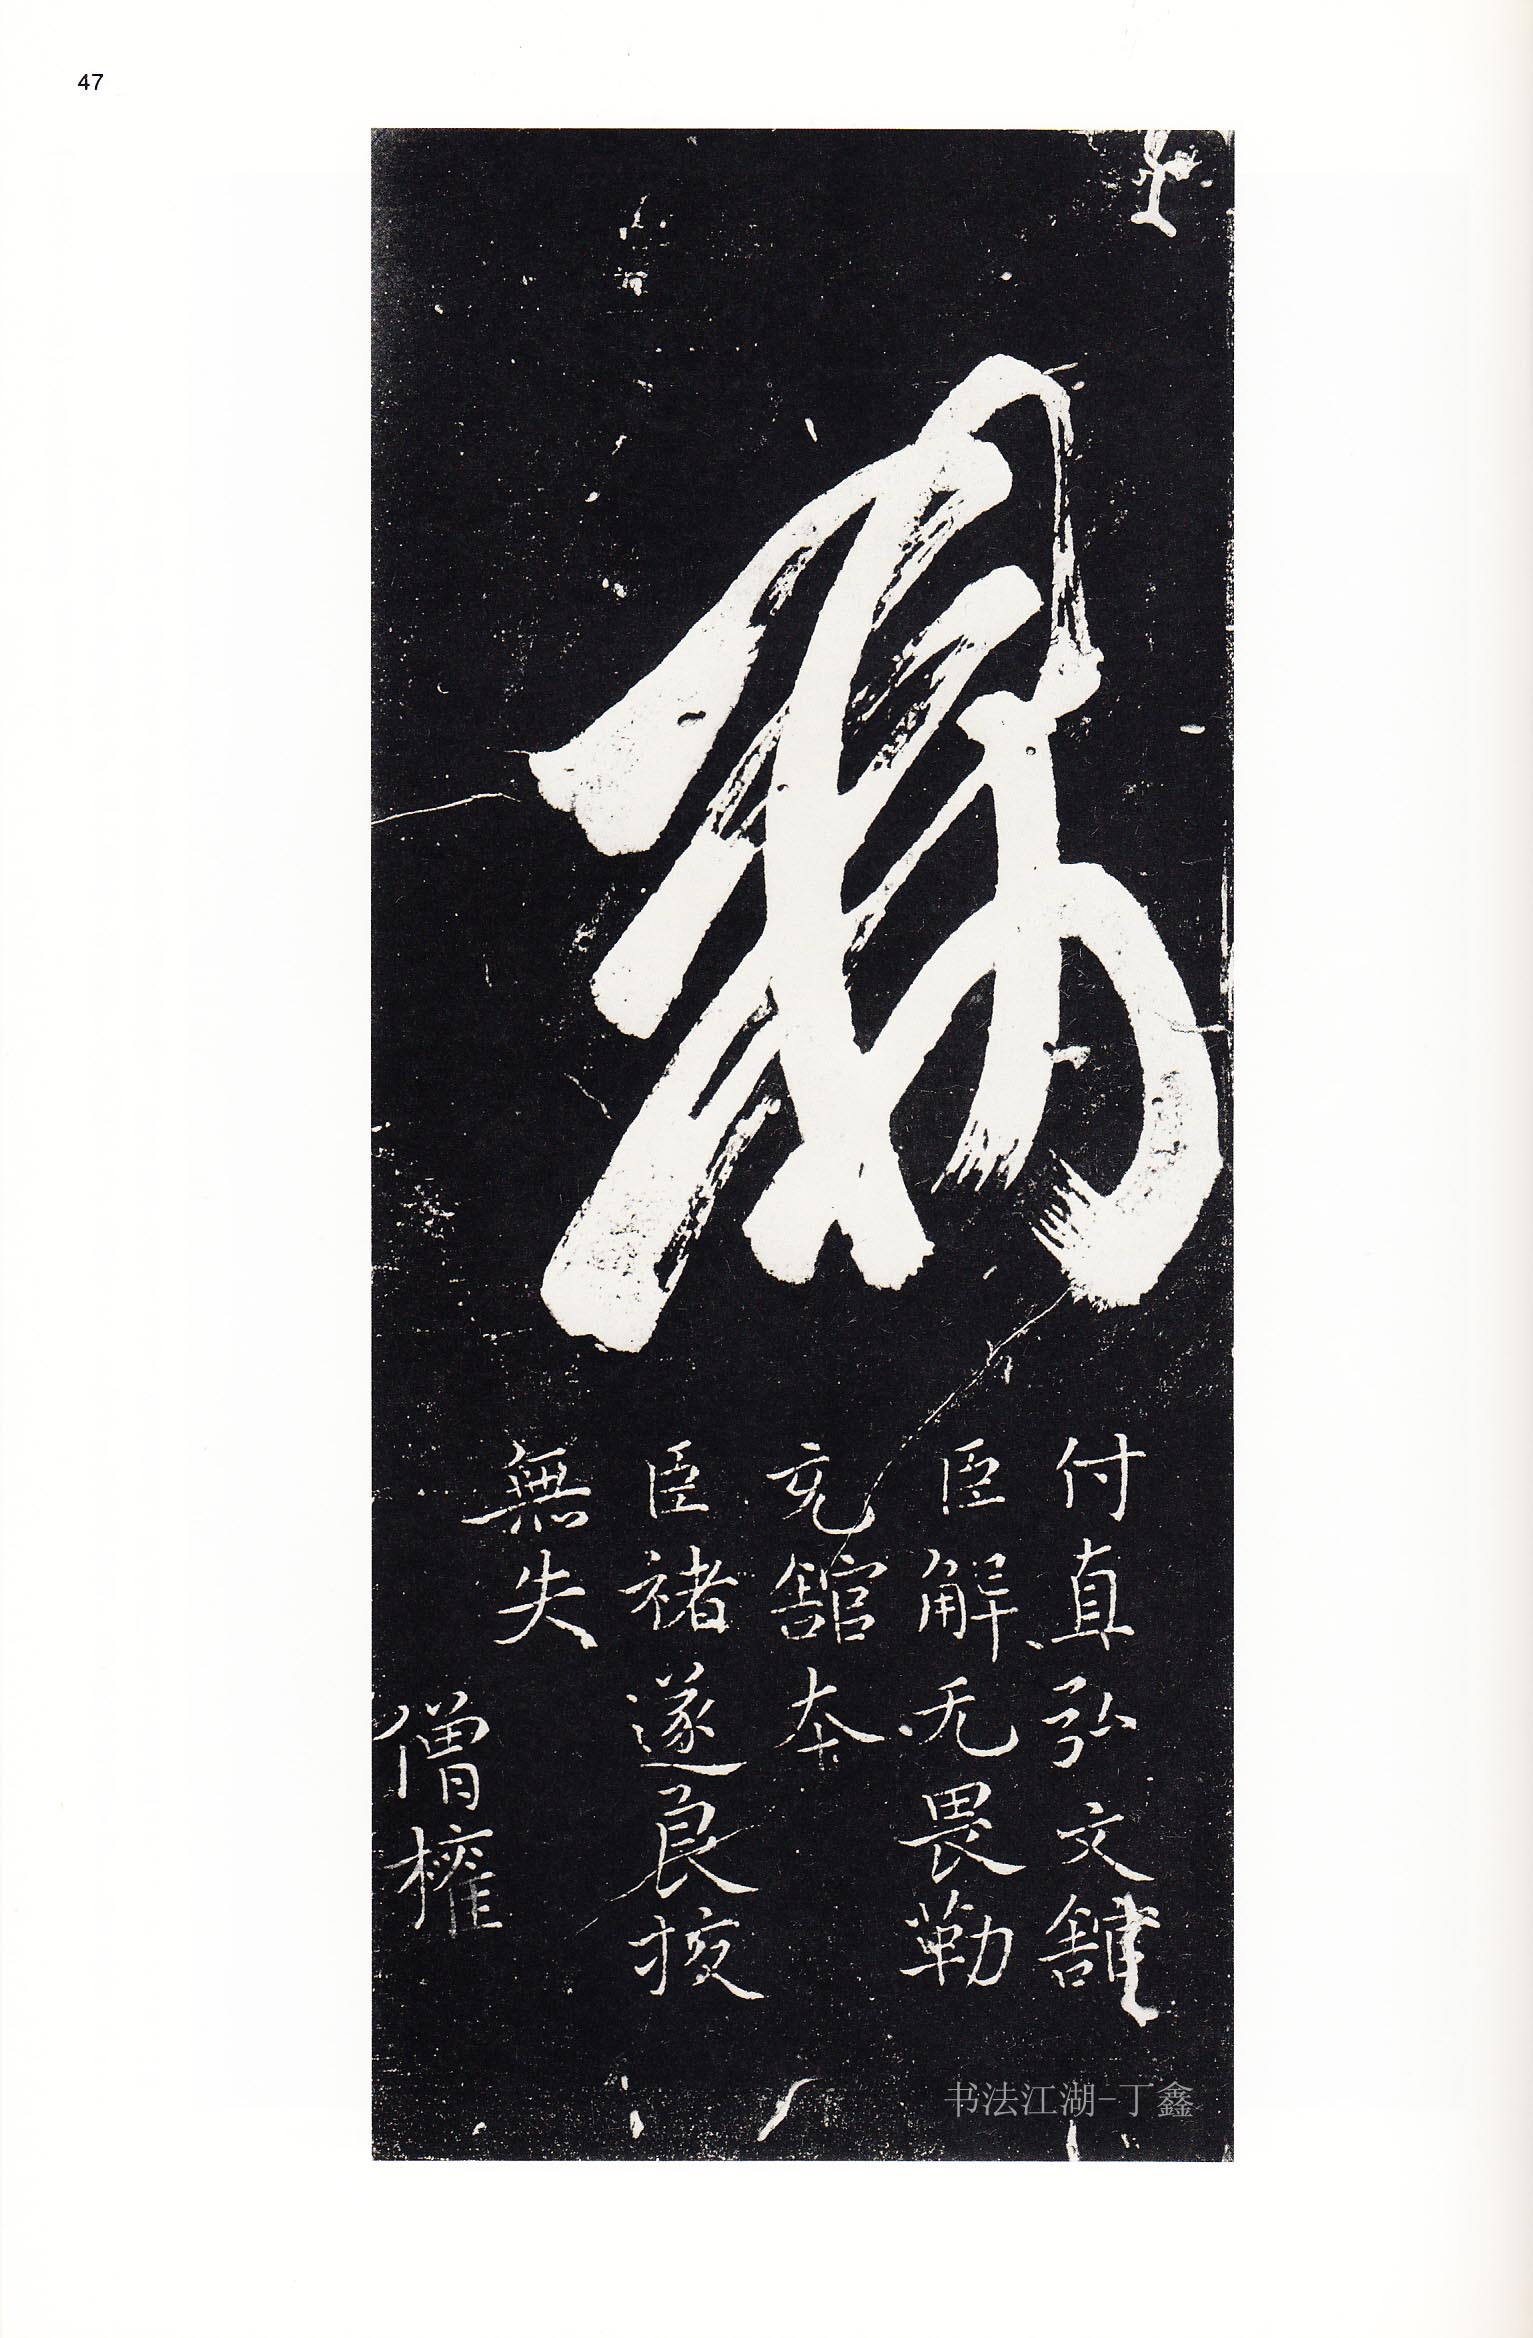 47
敕
付直弘文館
臣解无畏勒
充館本
臣褚遂良挍
無失
僧權
书法江湖-丁鑫